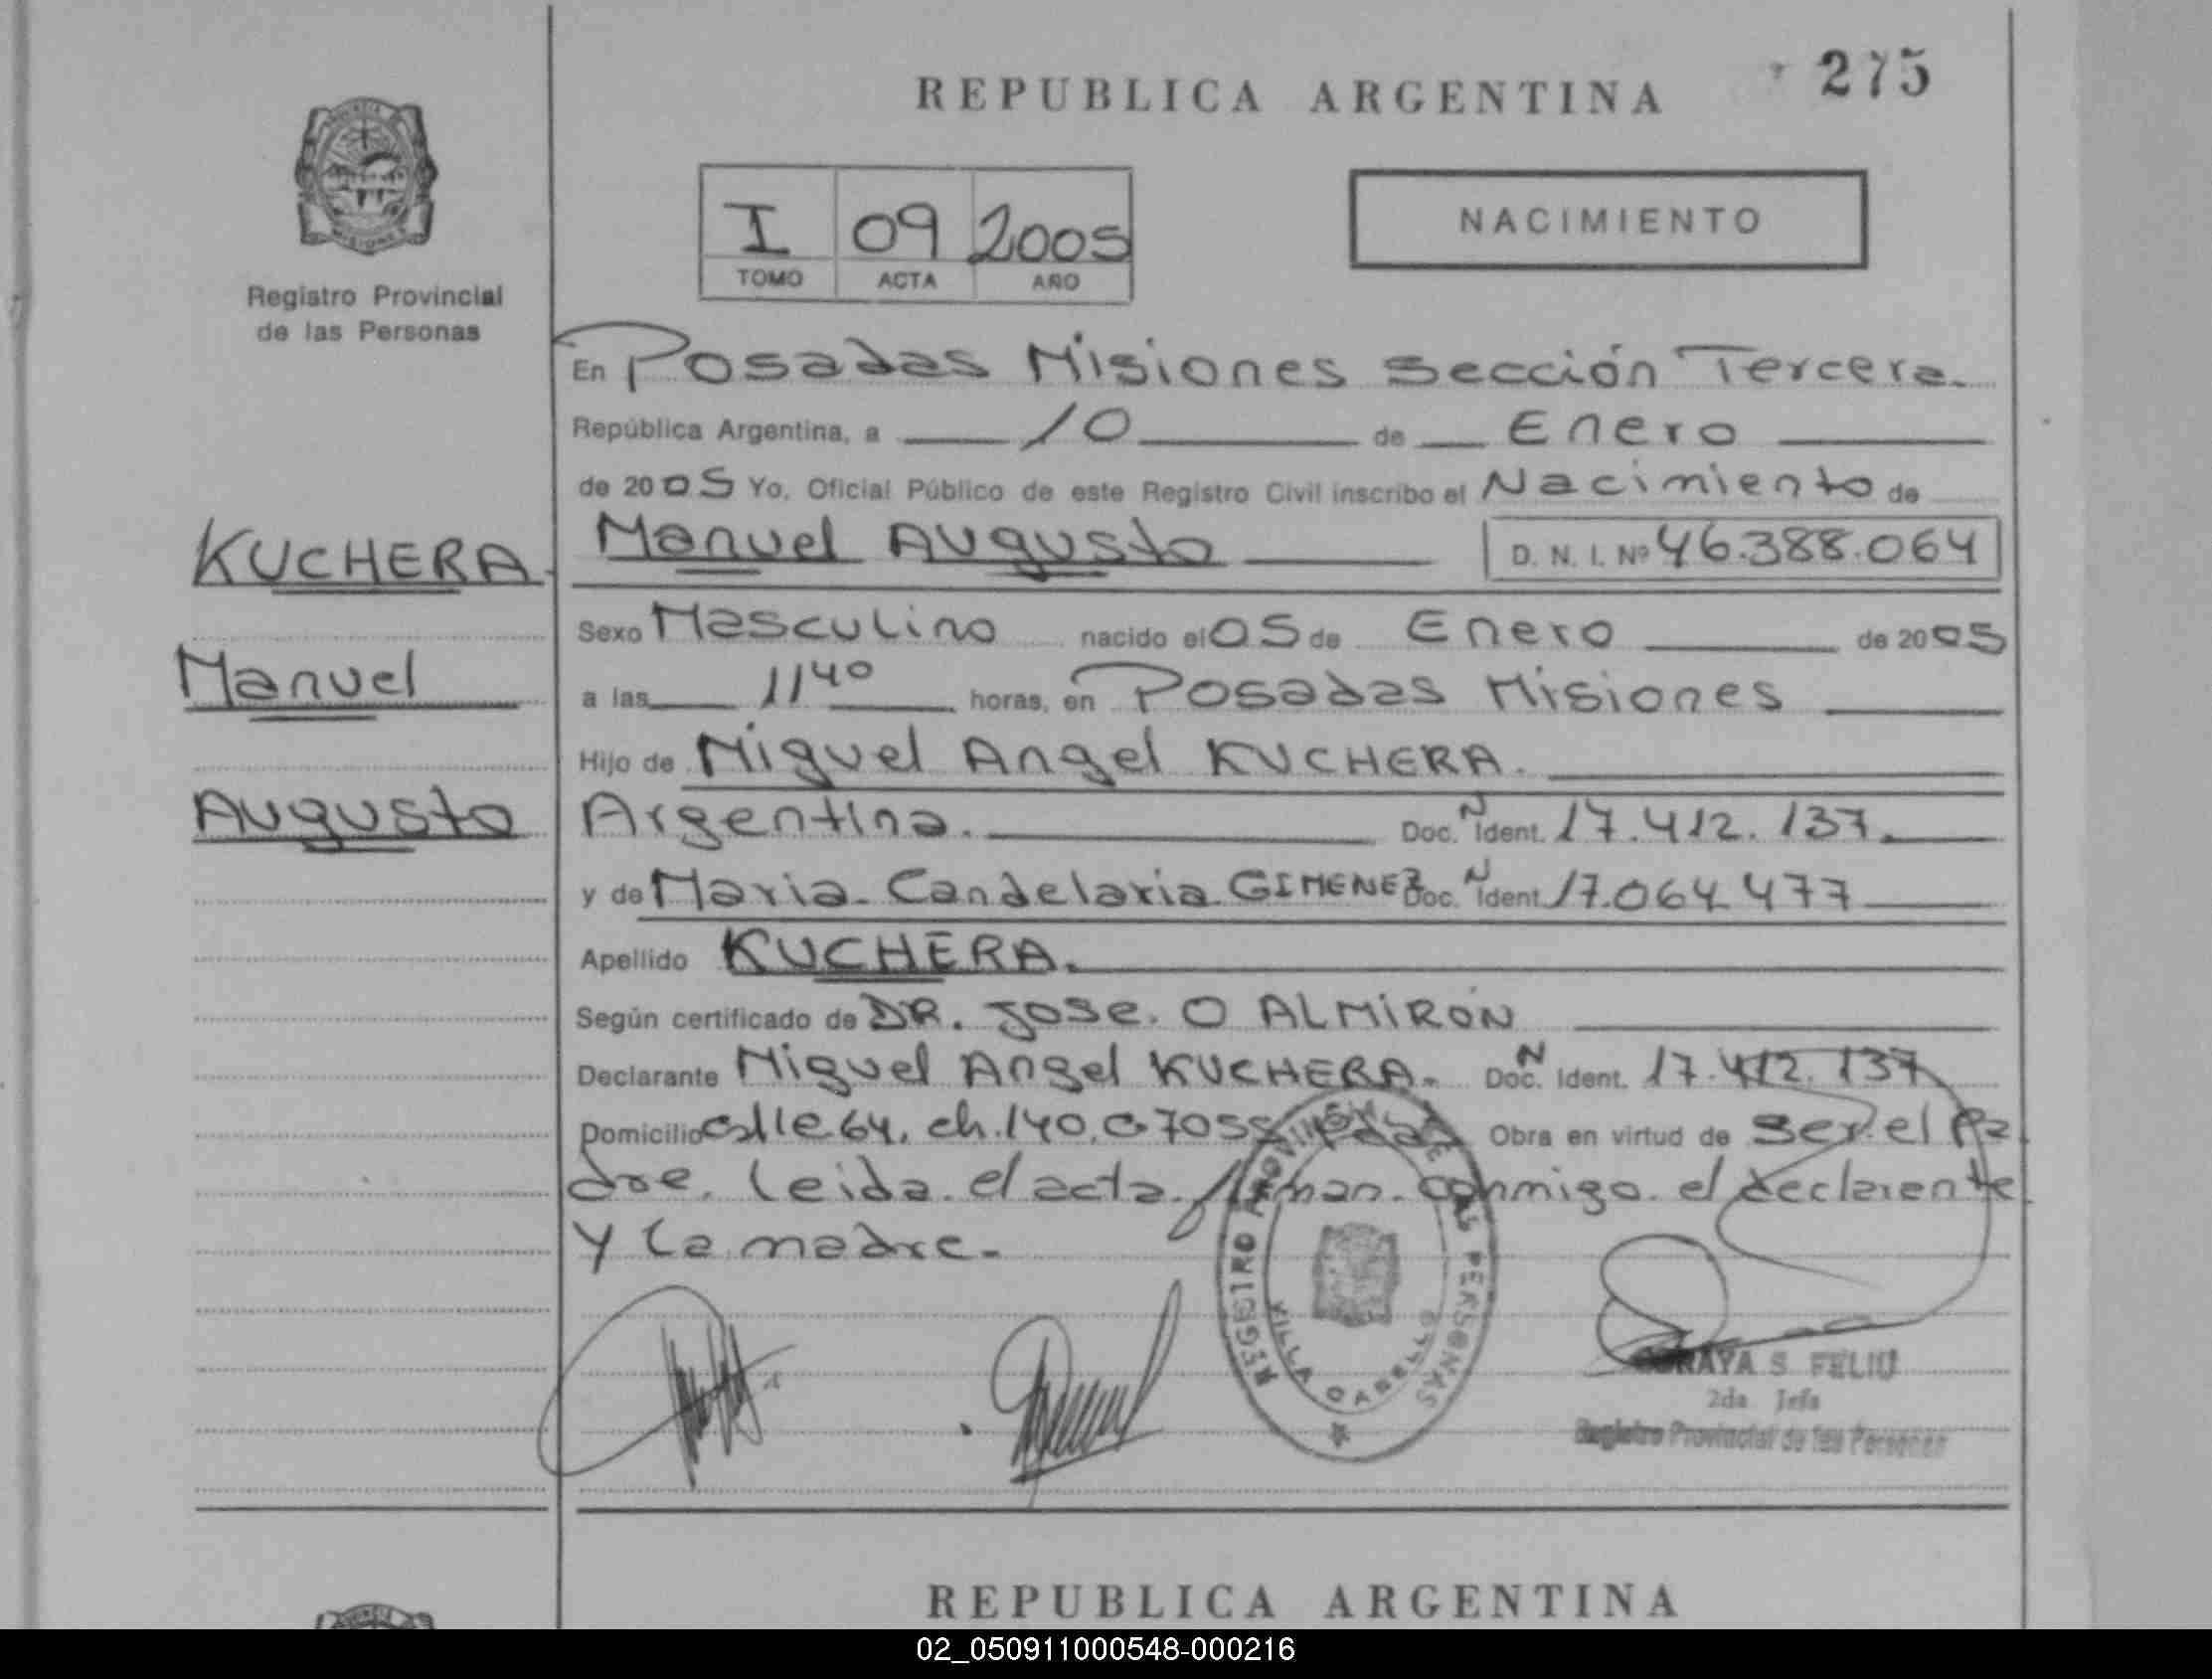 REPUBLICA ARGENTINA
275
I 09 2005
TOMO ACTA AÑO
NACIMIENTO
MISIONES
Registro Provincial
de las Personas
En Posadas Misiones Sección Tercera.
República Argentina, a 10 de Enero
de 2005 Yo, Oficial Público de este Registro Civil inscribo el Nacimiento de
KUCHERA
Manuel Augusto D. N. I. Nº 46.388.064
Sexo Masculino nacido el 05 de Enero de 2005
Manuel
a las 11 40 horas, en Posadas Misiones
Hijo de Miguel Angel KUCHERA.
Augusto
Argentina. Doc. N Ident. 17.412.137.
y de Maria Candelaria GIMENEZ Doc. N Ident. 17.064.477
Apellido KUCHERA.
Según certificado de DR. Jose. O ALMIRÓN
Declarante Miguel Angel KUCHERA. Doc. N Ident. 17.412.137
Domicilio calle 64, ch. 140, c 7055 Obra en virtud de ser el Pa
dre. Leida el acta firman conmigo el declarante
y la madre.
REGISTRO PROVINCIAL DE LAS PERSONAS
VILLA CABELLO
S. FELIU
2da Jefa
Registro Provincial de las Personas
REPUBLICA ARGENTINA
02_050911000548-000216